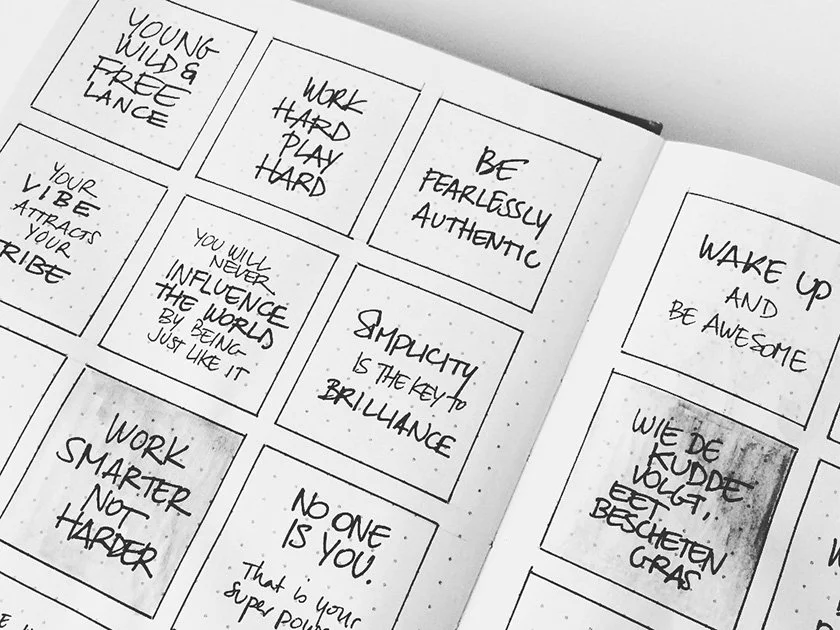 YOUNG
WILD &
FREE
LANCE
WORK
HARD
PLAY
HARD
BE
FEARLESSLY
AUTHENTIC
YOUR
VIBE
ATTRACTS
YOUR
RIBE
YOU WILL
NEVER
INFLUENCE
THE WORLD
BY BEING
JUST LIKE IT
SIMPLICITY
IS THE KEY TO
BRILLIANCE
WORK
SMARTER
NOT
HARDER
NO ONE
IS YOU.
That is your
super power
WAKE UP
AND
BE AWESOME
WIE DE
KUDDE
VOLGT,
EET
BESCHETEN
GRAS